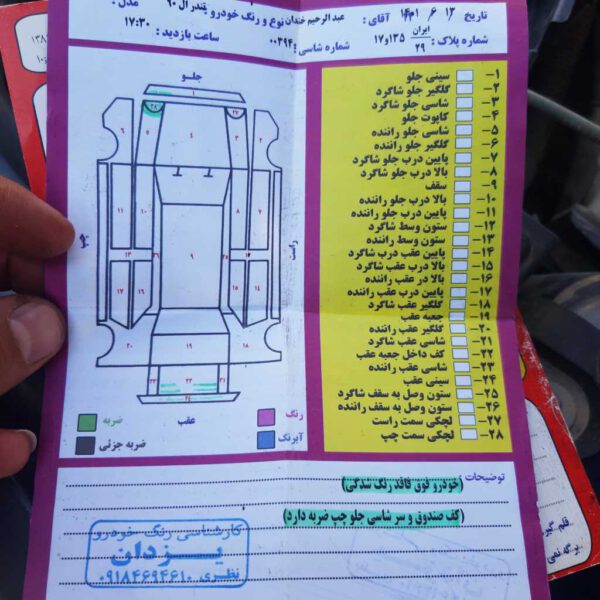 تاریخ ۱۴۰۱/۶/۱۲ آقای : عبدالرحیم خندان نوع و رنگ خودرو : تندر ال ۹۰ مدل :
شماره پلاک : ایران ۲۹ ۱۳۵و۱۷ شماره شاسی : ۰۰۳۹۴ ساعت بازدید : ۱۷:۳۰
جلو
راست
چپ
عقب
رنگ
ضربه
آبرنگ
ضربه جزئی
۱- سینی جلو
۲- گلگیر جلو شاگرد
۳- شاسی جلو شاگرد
۴- کاپوت جلو
۵- شاسی جلو راننده
۶- گلگیر جلو راننده
۷- پایین درب جلو شاگرد
۸- بالا درب جلو شاگرد
۹- سقف
۱۰- بالا درب جلو راننده
۱۱- پایین درب جلو راننده
۱۲- ستون وسط شاگرد
۱۳- ستون وسط راننده
۱۴- پایین عقب درب شاگرد
۱۵- بالا درب عقب شاگرد
۱۶- بالا در عقب راننده
۱۷- پایین درب عقب راننده
۱۸- گلگیر عقب شاگرد
۱۹- جعبه عقب
۲۰- گلگیر عقب راننده
۲۱- شاسی عقب شاگرد
۲۲- کف داخل جعبه عقب
۲۳- شاسی عقب راننده
۲۴- سینی عقب
۲۵- ستون وصل به سقف شاگرد
۲۶- ستون وصل به سقف راننده
۲۷- لچکی سمت راست
۲۸- لچکی سمت چپ
توضیحات :
(خودرو فوق فاقد رنگ شدگی)
(کف صندوق و سر شاسی جلو چپ ضربه دارد)
کارشناسی رنگ خودرو
یزدان
نظری ۰۹۱۸۴۶۹۴۶۱۰